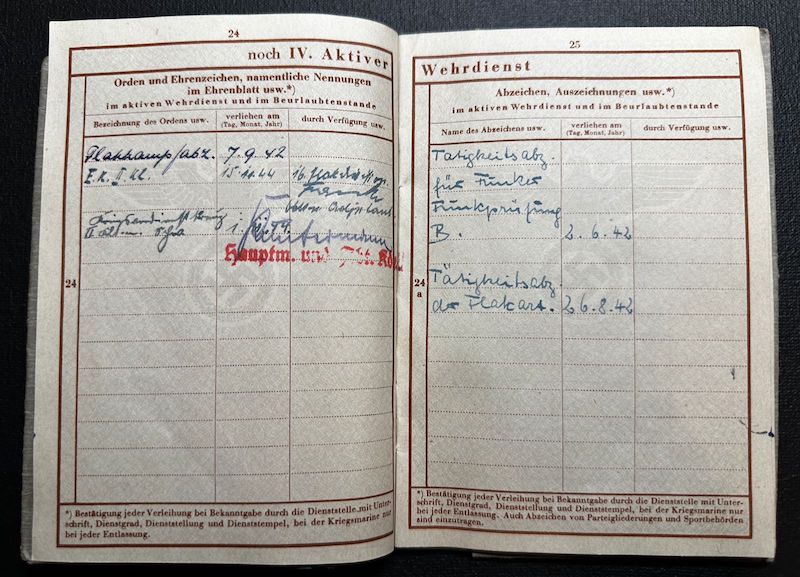 24
noch IV. Aktiver
Orden und Ehrenzeichen, namentliche Nennungen
im Ehrenblatt usw.*)
im aktiven Wehrdienst und im Beurlaubtenstande
Bezeichnung des Ordens usw.
verliehen am
(Tag, Monat, Jahr)
durch Verfügung usw.
Flakkampfabz. 7.9.42
E.K. II. Kl. 15 11.44 16. Flak
II 
Hauptm. und
24
*) Bestätigung jeder Verleihung bei Bekanntgabe durch die Dienststelle mit Unter-
schrift, Dienstgrad, Dienststellung und Dienststempel, bei der Kriegsmarine nur
bei jeder Entlassung.
25
Wehrdienst
Abzeichen, Auszeichnungen usw.*)
im aktiven Wehrdienst und im Beurlaubtenstande
Name des Abzeichens usw.
verliehen am
(Tag, Monat, Jahr)
durch Verfügung usw.
Tätigkeitsabz.
für Funker
Funkprüfung
B. 2.6.42
Tätigkeitsabz.
d. Flakart. 26.8.42
24
a
*) Bestätigung jeder Verleihung bei Bekanntgabe durch die Dienststelle mit Unter-
schrift, Dienstgrad, Dienststellung und Dienststempel, bei der Kriegsmarine nur
bei jeder Entlassung. Auch Abzeichen von Parteigliederungen und Sportbehörden
sind einzutragen.